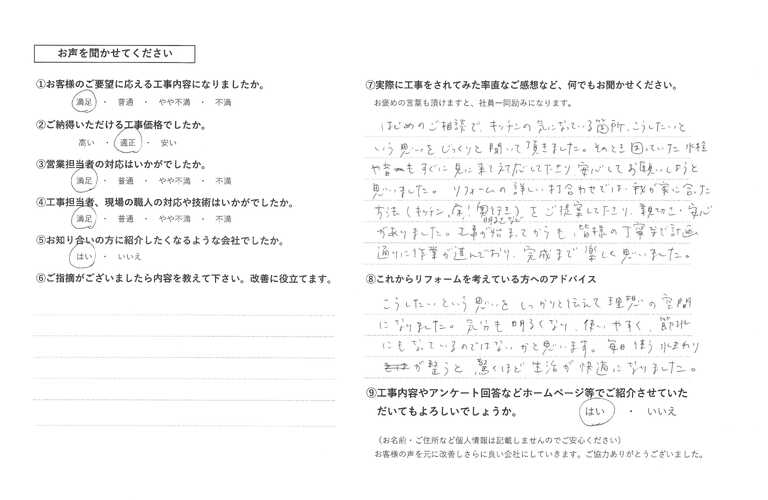 お声を聞かせてください
①お客様のご要望に応える工事内容になりましたか。
満足 ・ 普通 ・ やや不満 ・ 不満
②ご納得いただける工事価格でしたか。
高い ・ 適正 ・ 安い
③営業担当者の対応はいかがでしたか。
満足 ・ 普通 ・ やや不満 ・ 不満
④工事担当者、現場の職人の対応や技術はいかがでしたか。
満足 ・ 普通 ・ やや不満 ・ 不満
⑤お知り合いの方に紹介したくなるような会社でしたか。
はい ・ いいえ
⑥ご指摘がございましたら内容を教えて下さい。改善に役立てます。
⑦実際に工事をされてみた率直なご感想など、何でもお聞かせください。
お褒めの言葉も頂けますと、社員一同励みになります。
はじめのご相談で、キッチンの気になっている箇所、こうしたいと
いう思いをじっくりと聞いて頂きました。そのとき困っていた水栓
もすぐに見に来て対応してくださり安心してお願いしようと
思いました。リフォームの詳しい打合わせでは、我が家に合った
方法(キッチン、扉!奥行き)をご提案してくださり、親切さ・安心
がありました。工事が始まってからも、皆様の丁寧な計画
通りに作業が進んでおり、完成まで楽しく思いました。
⑧これからリフォームを考えている方へのアドバイス
こうしたいという思いをしっかりと伝えて理想の空間
になりました。気分も明るくなり、使いやすく、節水
にもなっているのではないかと思います。毎日使う水まわり
が整うと驚くほど生活が快適になりました。
⑨工事内容やアンケート回答などホームページ等でご紹介させていた
だいてもよろしいでしょうか。 はい ・ いいえ
(お名前・ご住所など個人情報は記載しませんのでご安心ください)
お客様の声を元に改善しさらに良い会社にしていきます。ご協力ありがとうございました。